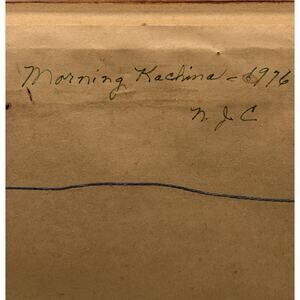 Morning Kachina - 1976
N. J C